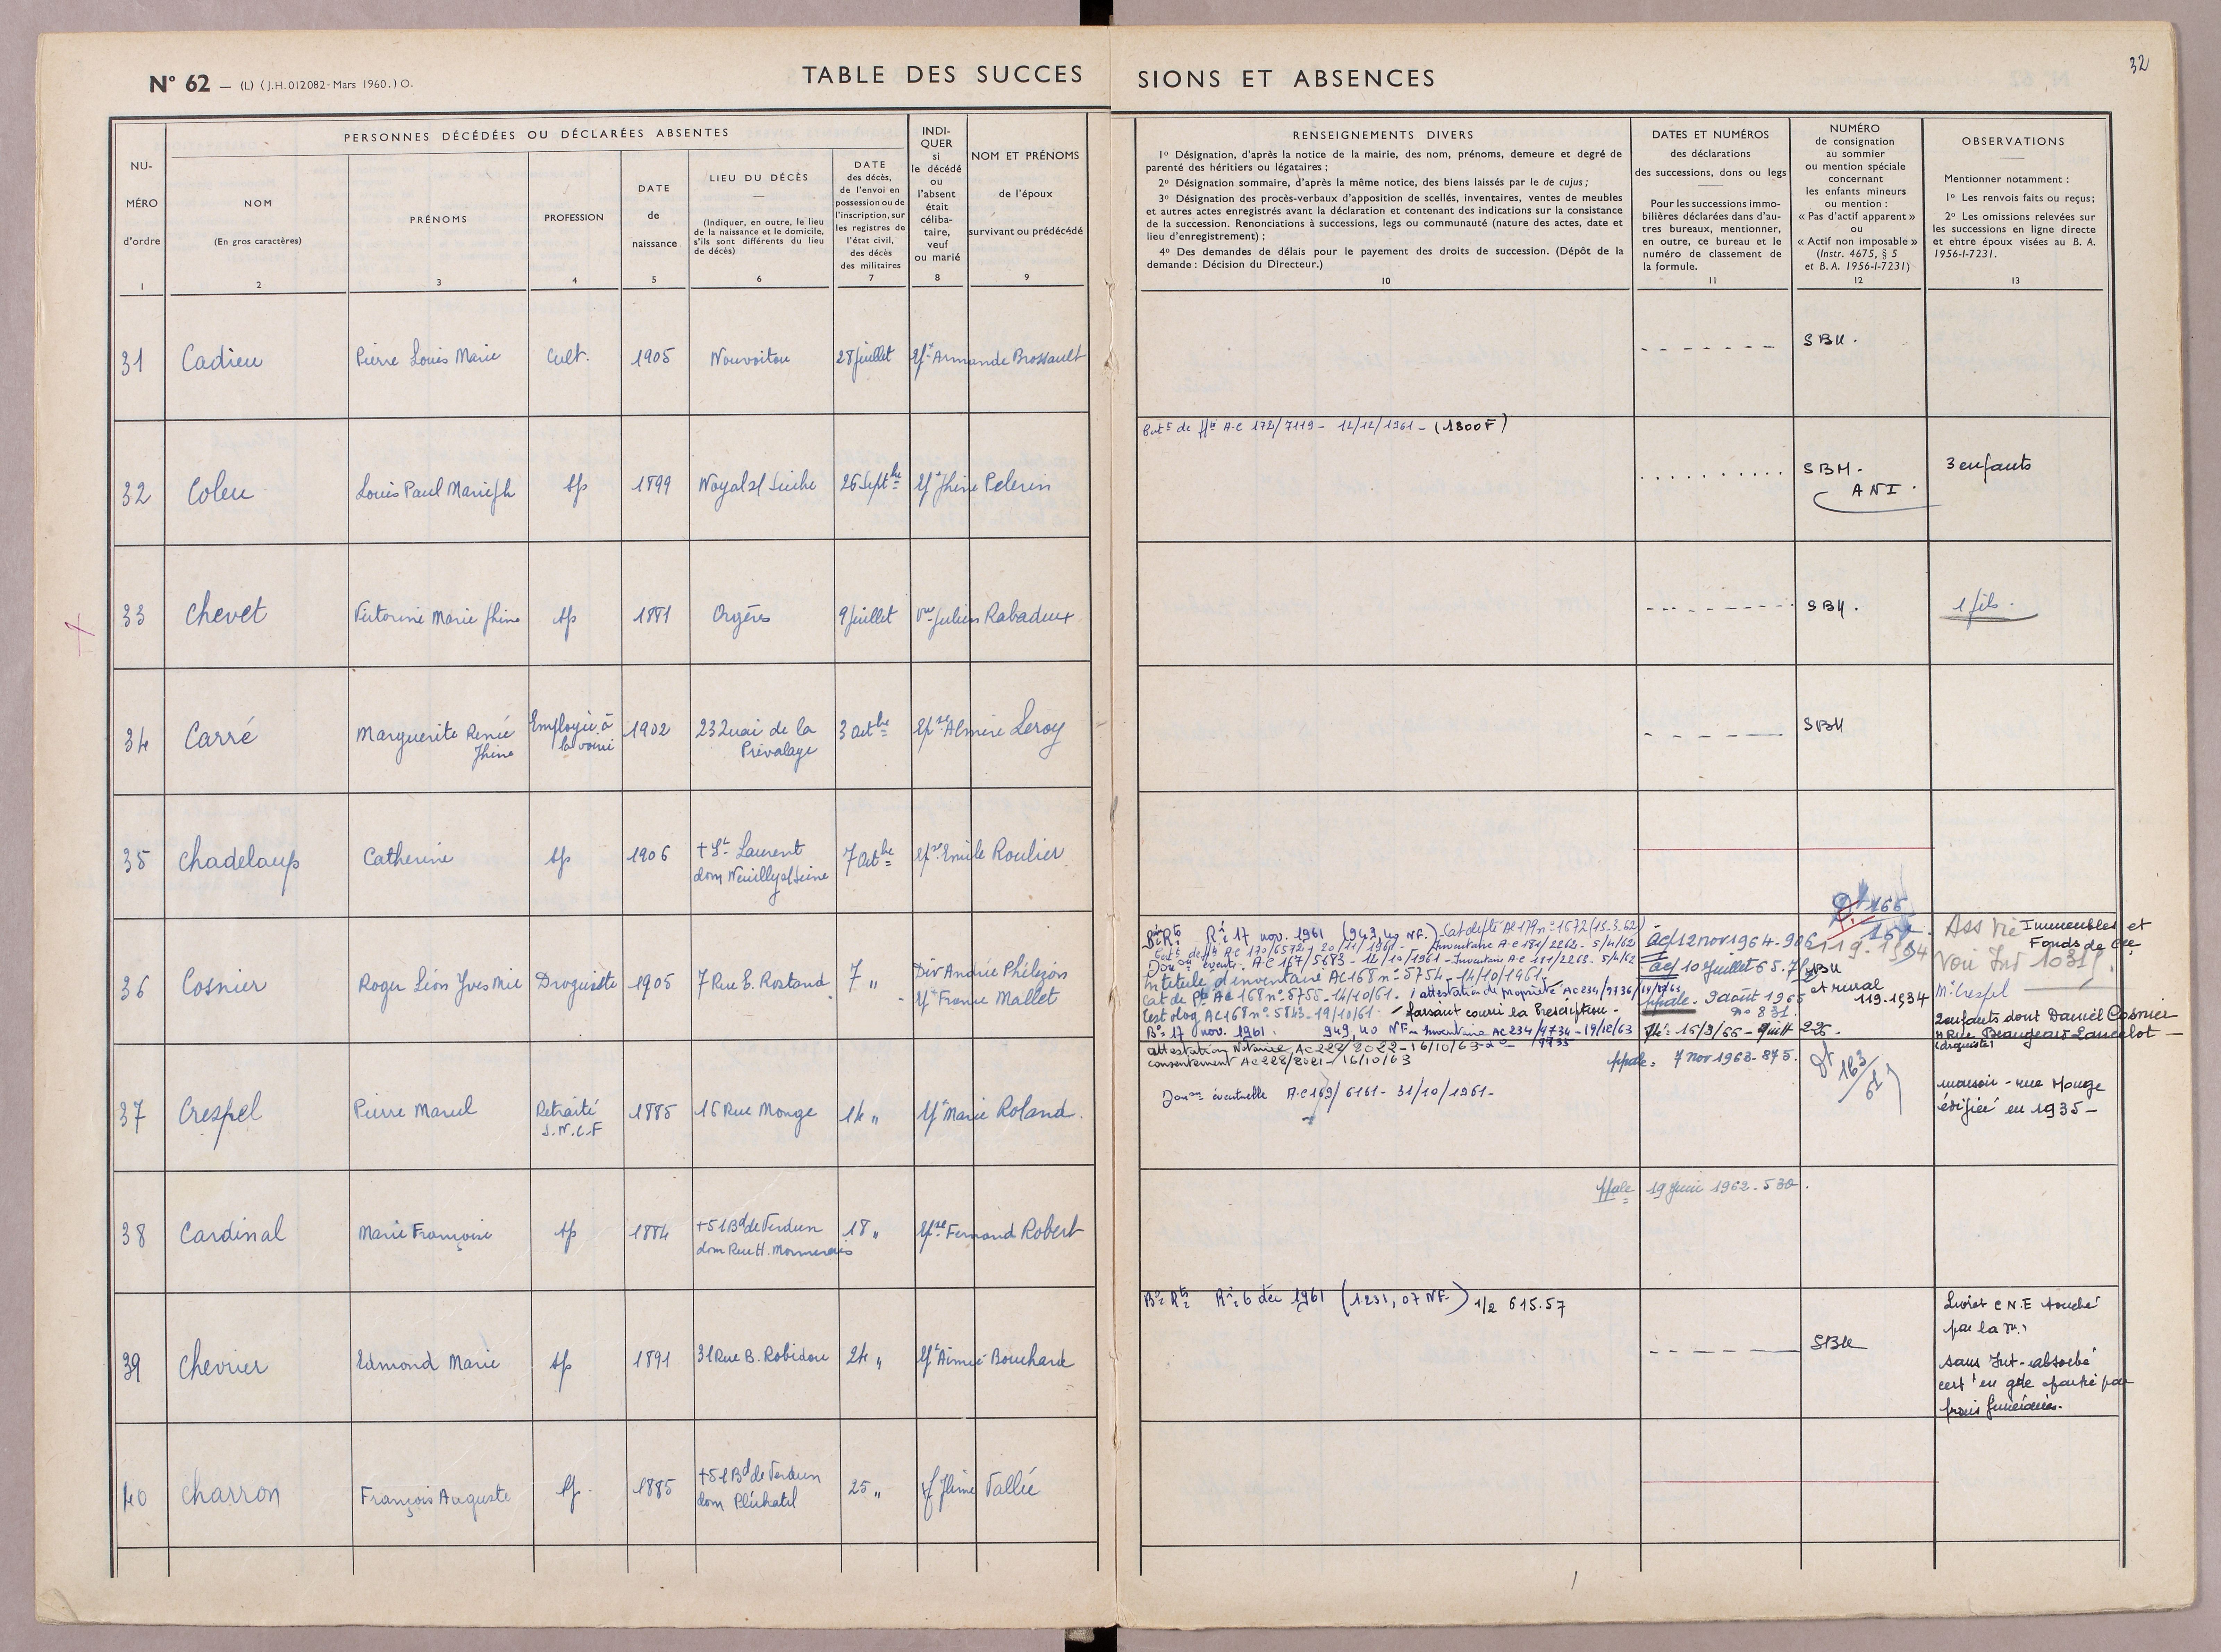 32
N° 62 — (L) (J.H.012082-Mars 1960.) O.
TABLE DES SUCCES
SIONS ET ABSENCES
NU-
MÉRO
d'ordre
1
PERSONNES DÉCÉDÉES OU DÉCLARÉES ABSENTES
NOM
(En gros caractères)
2
PRÉNOMS
3
PROFESSION
4
DATE
de
naissance
5
LIEU DU DÉCÈS
—
(Indiquer, en outre, le lieu
de la naissance et le domicile,
s'ils sont différents du lieu
de décès)
6
DATE
des décès,
de l'envoi en
possession ou de
l'inscription, sur
les registres de
l'état civil,
des décès
des militaires
7
INDI-
QUER
si
le décédé
ou
l'absent
était
céliba-
taire,
veuf
ou marié
8
NOM ET PRÉNOMS
de l'époux
survivant ou prédécédé
9
RENSEIGNEMENTS DIVERS
1° Désignation, d'après la notice de la mairie, des nom, prénoms, demeure et degré de
parenté des héritiers ou légataires ;
2° Désignation sommaire, d'après la même notice, des biens laissés par le de cujus ;
3° Désignation des procès-verbaux d'apposition de scellés, inventaires, ventes de meubles
et autres actes enregistrés avant la déclaration et contenant des indications sur la consistance
de la succession. Renonciations à successions, legs ou communauté (nature des actes, date et
lieu d'enregistrement) ;
4° Des demandes de délais pour le payement des droits de succession. (Dépôt de la
demande : Décision du Directeur.)
10
DATES ET NUMÉROS
des déclarations
des successions, dons ou legs
Pour les successions immo-
bilières déclarées dans d'au-
tres bureaux, mentionner,
en outre, ce bureau et le
numéro de classement de
la formule.
11
NUMÉRO
de consignation
au sommier
ou mention spéciale
concernant
les enfants mineurs
ou mention :
« Pas d'actif apparent »
ou
« Actif non imposable »
(Instr. 4675, § 5
et B. A. 1956-I-7231)
12
OBSERVATIONS
Mentionner notamment :
1° Les renvois faits ou reçus ;
2° Les omissions relevées sur
les successions en ligne directe
et entre époux visées au B. A.
1956-I-7231.
13
31 Cadieu Pierre Louis Marie Cult. 1905 Nouvoitou 28 juillet Armande Brossault SBM.
A.C 172/7119 - 12/12/1961 - (1800F)
32 Coleu Louis Paul Marie sp 1899 Noyal s/ Seiche 26 Septbre Pelerin SBM. 3 enfants
ANI.
33 Chevet Victorine Marie sp 1881 Orgères 9 juillet Vve Julien Rabadeux SBM. 1 fils.
34 Carré Marguerite Renée Employée à 1902 23 Quai de la 3 octbre Leroy SBM
la voirie Prévalaye
35 Chadelaup Catherine sp 1906 + St Laurent 7 octbre Emile Roulier
dom Neuilly s/ Seine
17 nov. 1961 (943,40 NF.)
Inventaire A.C 181/2262 - 5/4/62
A.C 167/5683 - 12/10/1961 - Inventaire A.C 181/2263 - 5/4/62
Intitulé d'inventaire AC168 n° 5754 - 14/10/1961 -
AC 168 n° 5755 - 14/10/61. attestation de propriété AC 234/9736
AC168 n° 5843 - 19/10/61 - faisant courir la Prescription -
17 nov. 1961. Inventaire AC 234/9734 - 19/12/63
12 nov 1964 - 906
10 juillet 65
9 août 1965
n° 831
et rural
119.1934
Immeubles et
Fonds de Cce
2 enfants dont Daniel Cosnier
36 Cosnier Roger Léon Yves Mie Droguiste 1905 7 Rue E. Rostand 7 " Div Andrée Phélizon
France Mallet
attestation Notariée AC 222/2022 - 16/10/63
consentement AC 222/2021 - 16/10/63
7 nov 1963 - 875.
37 Crespel Pierre Marcel Retraité 1885 16 Rue Monge 14 " Marie Roland.
S.N.C.F
éventuelle A.C 169/6161 - 31/10/1961 -
163/61
maison - rue Monge
édifiée en 1935 -
38 Cardinal Marie Françoise sp 1884 + 51 Bd de Verdun 18 " Fernand Robert 19 juin 1962 - 530.
dom Rue H.
6 déc 1961 (1.231,07 NF.) 1/2 615.57
39 Chevrier Edmond Marie sp 1891 31 Rue B. Robidou 24 " Aimée Bouchard SBM
Livret C.N.E touché
par la
sans Int - absorbé
en gde partie par
frais funéraires.
40 Charron François Auguste 1885 + 51 Bd de Verdun 25 " Vallée
dom Pléchatel